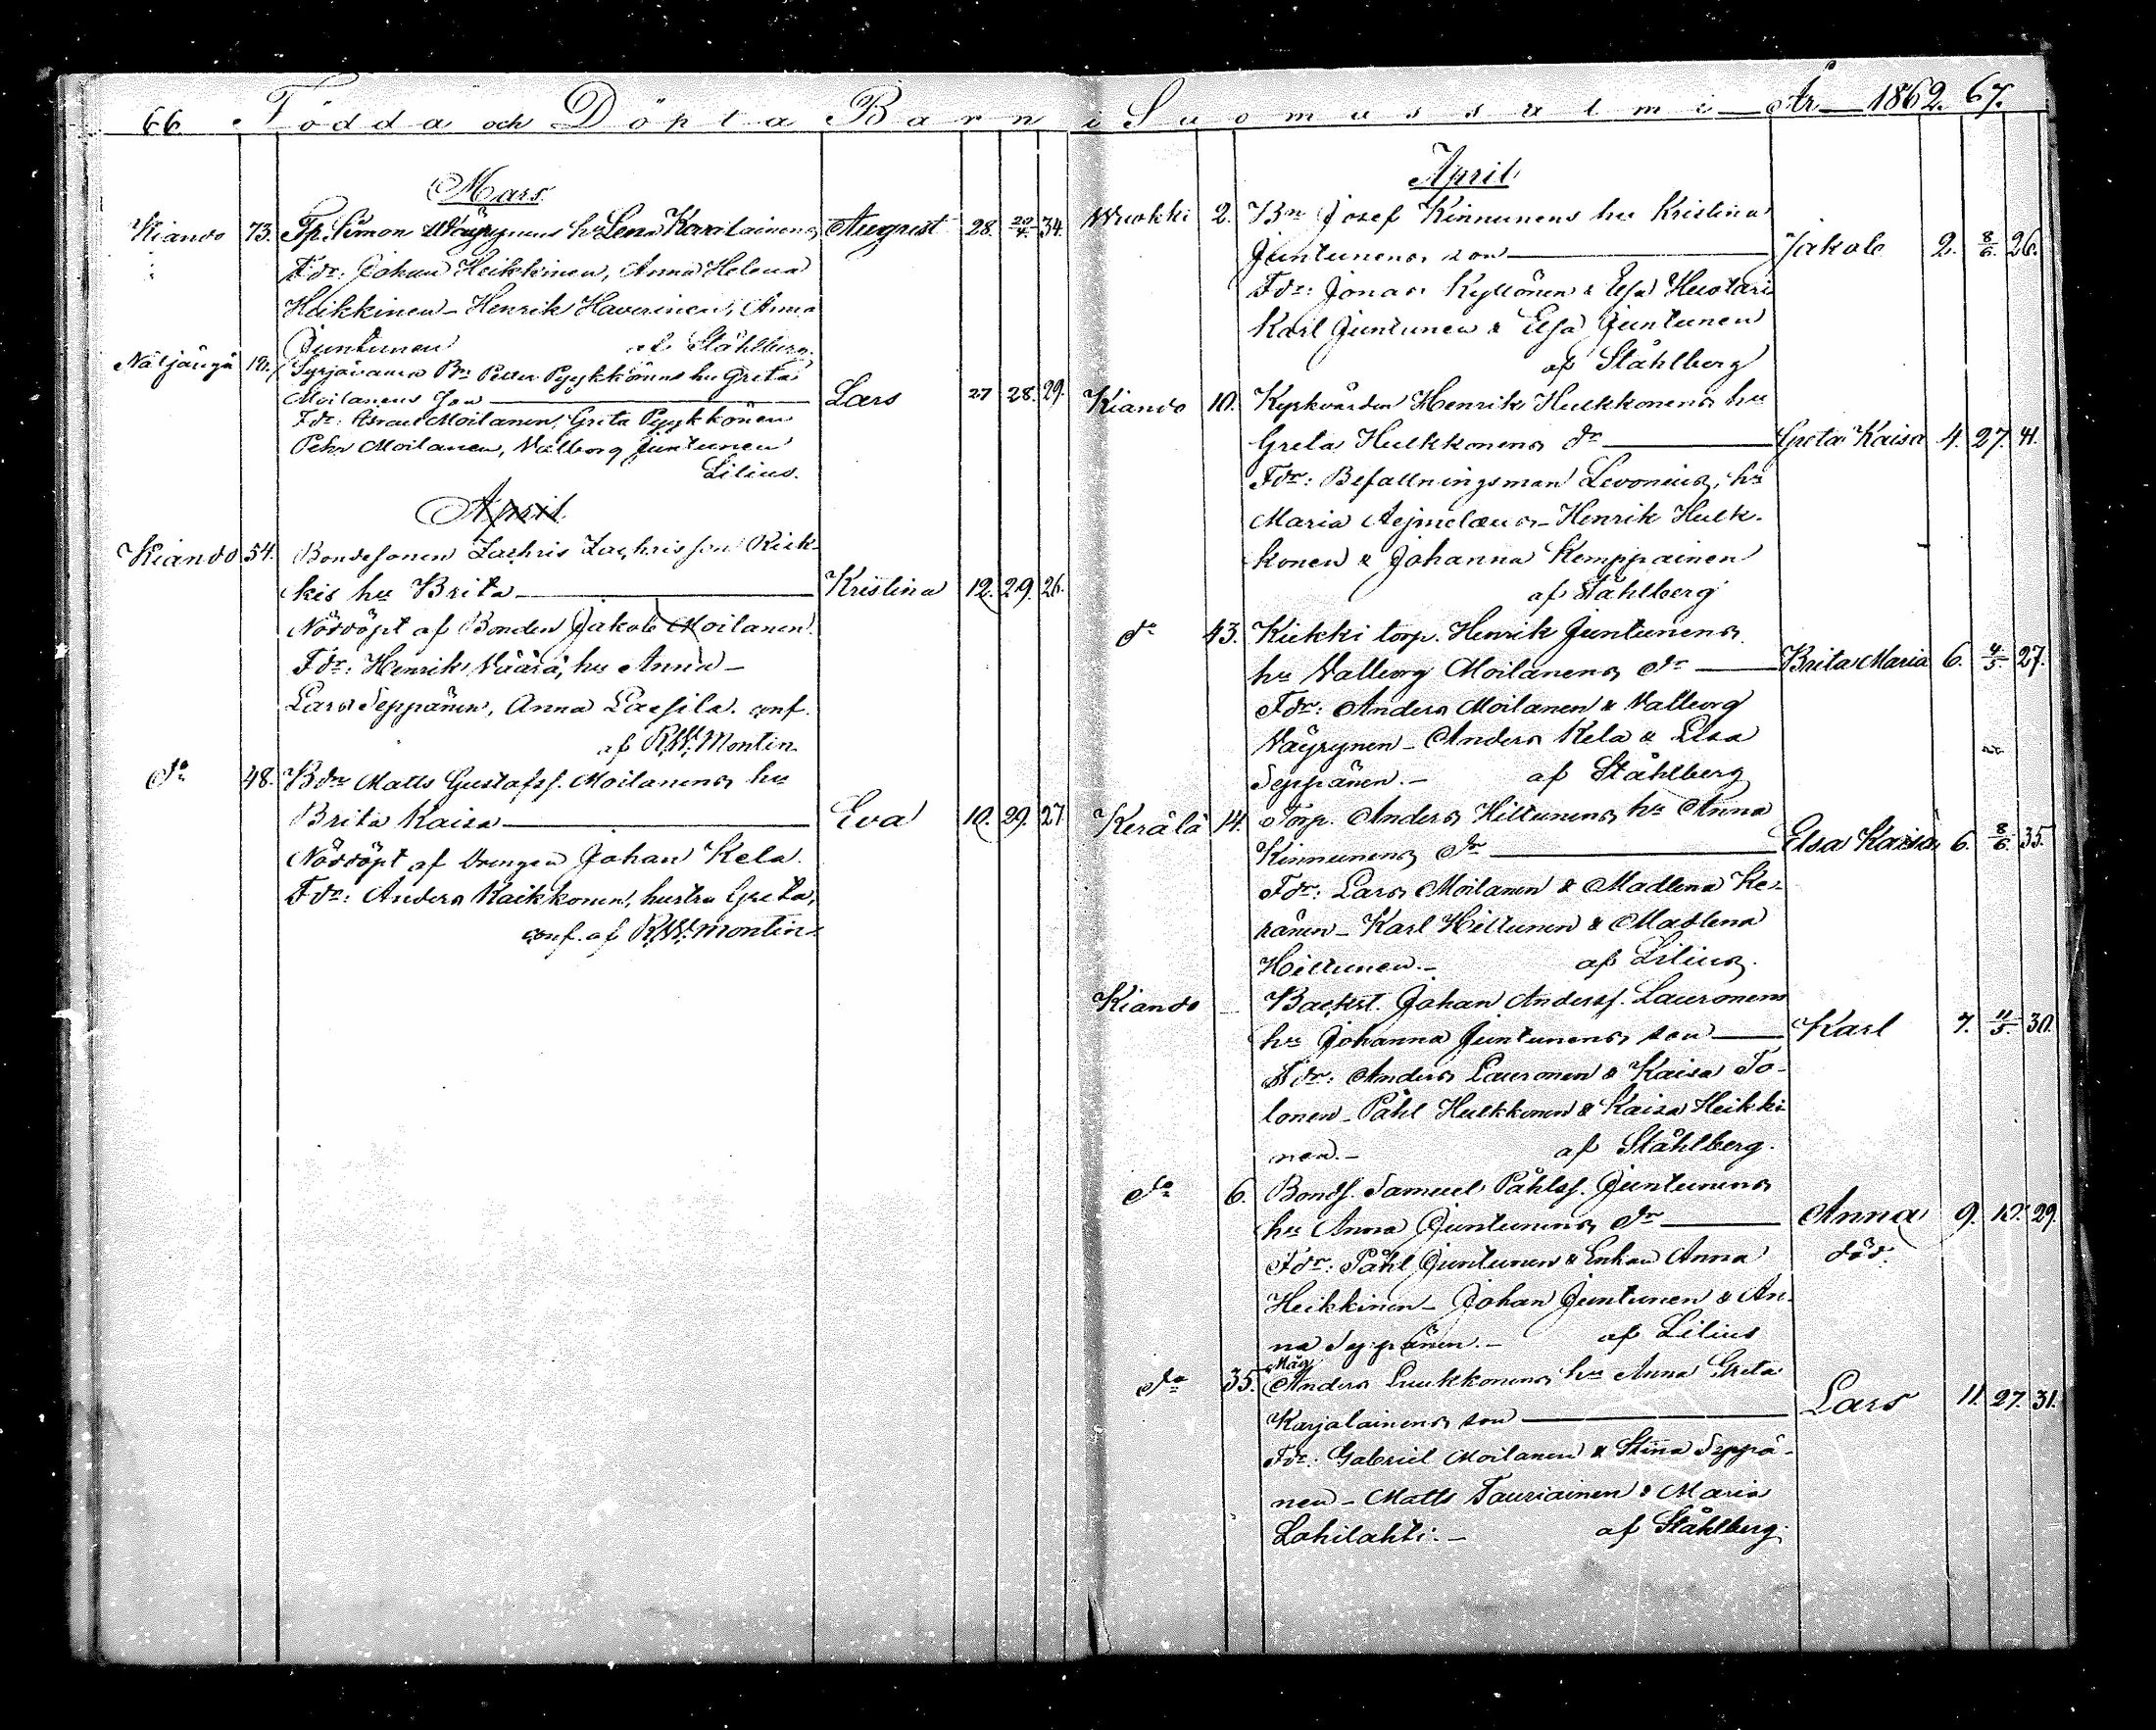 66. Födda och Döpta Barn i Suomussalmi År 1862. 67.
Mars
Kiando 73. Tp. Simon Wäyrynens h. Lena Karilainens August 28. 20/4. 34.
Fdr: Johan Heikkinen, Anna Helena
Heikkinen – Henrik Haverinen, Anna
Juntunen af Ståhlberg.
Näljängä 12. Syrjävaara Bn Petter Pyykkönens hu Greta
Moilanens Son Lars 27 28. 29.
Fdr: Israel Moilanen, Greta Pyykkönen
Pehr Moilanen, Valborg Juntunen
Lilius.
April
Kiando 54. Bondesonen Zachris Zachrisson Kiek-
kis hu Brita Kristina 12. 29. 26.
Nöddöpt af Bonden Jakob Moilanen.
Fdr: Henrik Väärä, hu Anna –
Lars Seppänen, Anna Lassila. conf.
af R.W. Montin
do 48. Bdn Matts Gustafsf. Moilanens hu
Brita Kaisa Eva 10. 29. 27
Nöddöpt af Drengen Johan Kela.
Fdr: Anders Kaikkonen, hustru Greta,
conf. af R.W. Montin.
April
Wuokki 2. Bn Josef Kinnunens hu Kristina
Juntunens son Jakob 2. 8/6. 26.
Fdr: Jonas Kyllönen & Elsa Huotari
Karl Juntunen & Elsa Juntunen
af Ståhlberg
Kiando 10. Kyrkvärden Henrik Hulkkonens hu
Greta Hulkkonens dr Greta Kaisa 4. 27. 41.
Fdr: Befallningsman Levonius, hu
Maria Aejmelæus – Henrik Hulk-
konen & Johanna Kemppainen
af Ståhlberg
do 43. Kiekki torp. Henrik Juntunens
hu Valborg Moilanens dr Brita Maria 6. 4/5. 27.
Fdr: Anders Moilanen & Valborg
Väyrynen – Anders Kela & Lisa
Seppänen. – af Ståhlberg
Kerälä 14. Torp. Anders Hiltunens hu Anna
Kinnunens dr Elsa Kaisa 6. 8/6. 35.
Fdr: Lars Moilanen & Madlena Ke-
ränen – Karl Hiltunen & Madlena
Hiltunen. – af Lilius.
Kiando Backst. Johan Andersf. Lauronens
hu Johanna Juntunens son Karl 7. 11/5. 30.
Fdr: Anders Lauronen & Kaisa To-
lonen – Påhl Hulkkonen & Kaisa Heikki-
nen. – af Ståhlberg.
do 6. Bondf. Samuel Påhlsf. Juntunens
hu Anna Juntunens dr Anna 9. 10. 29.
Fdr: Påhl Juntunen & Enkan Anna död.
Heikkinen – Johan Juntunen & An-
na Seppänen. – af Lilius
do 35. Måg Anders Luukkonens hu Anna Greta
Karjalainens son Lars 11. 27. 31.
Fdr: Gabriel Moilanen & Stina Seppä-
nen – Matts Tauriainen & Maria
Lohilahti. – af Ståhlberg.